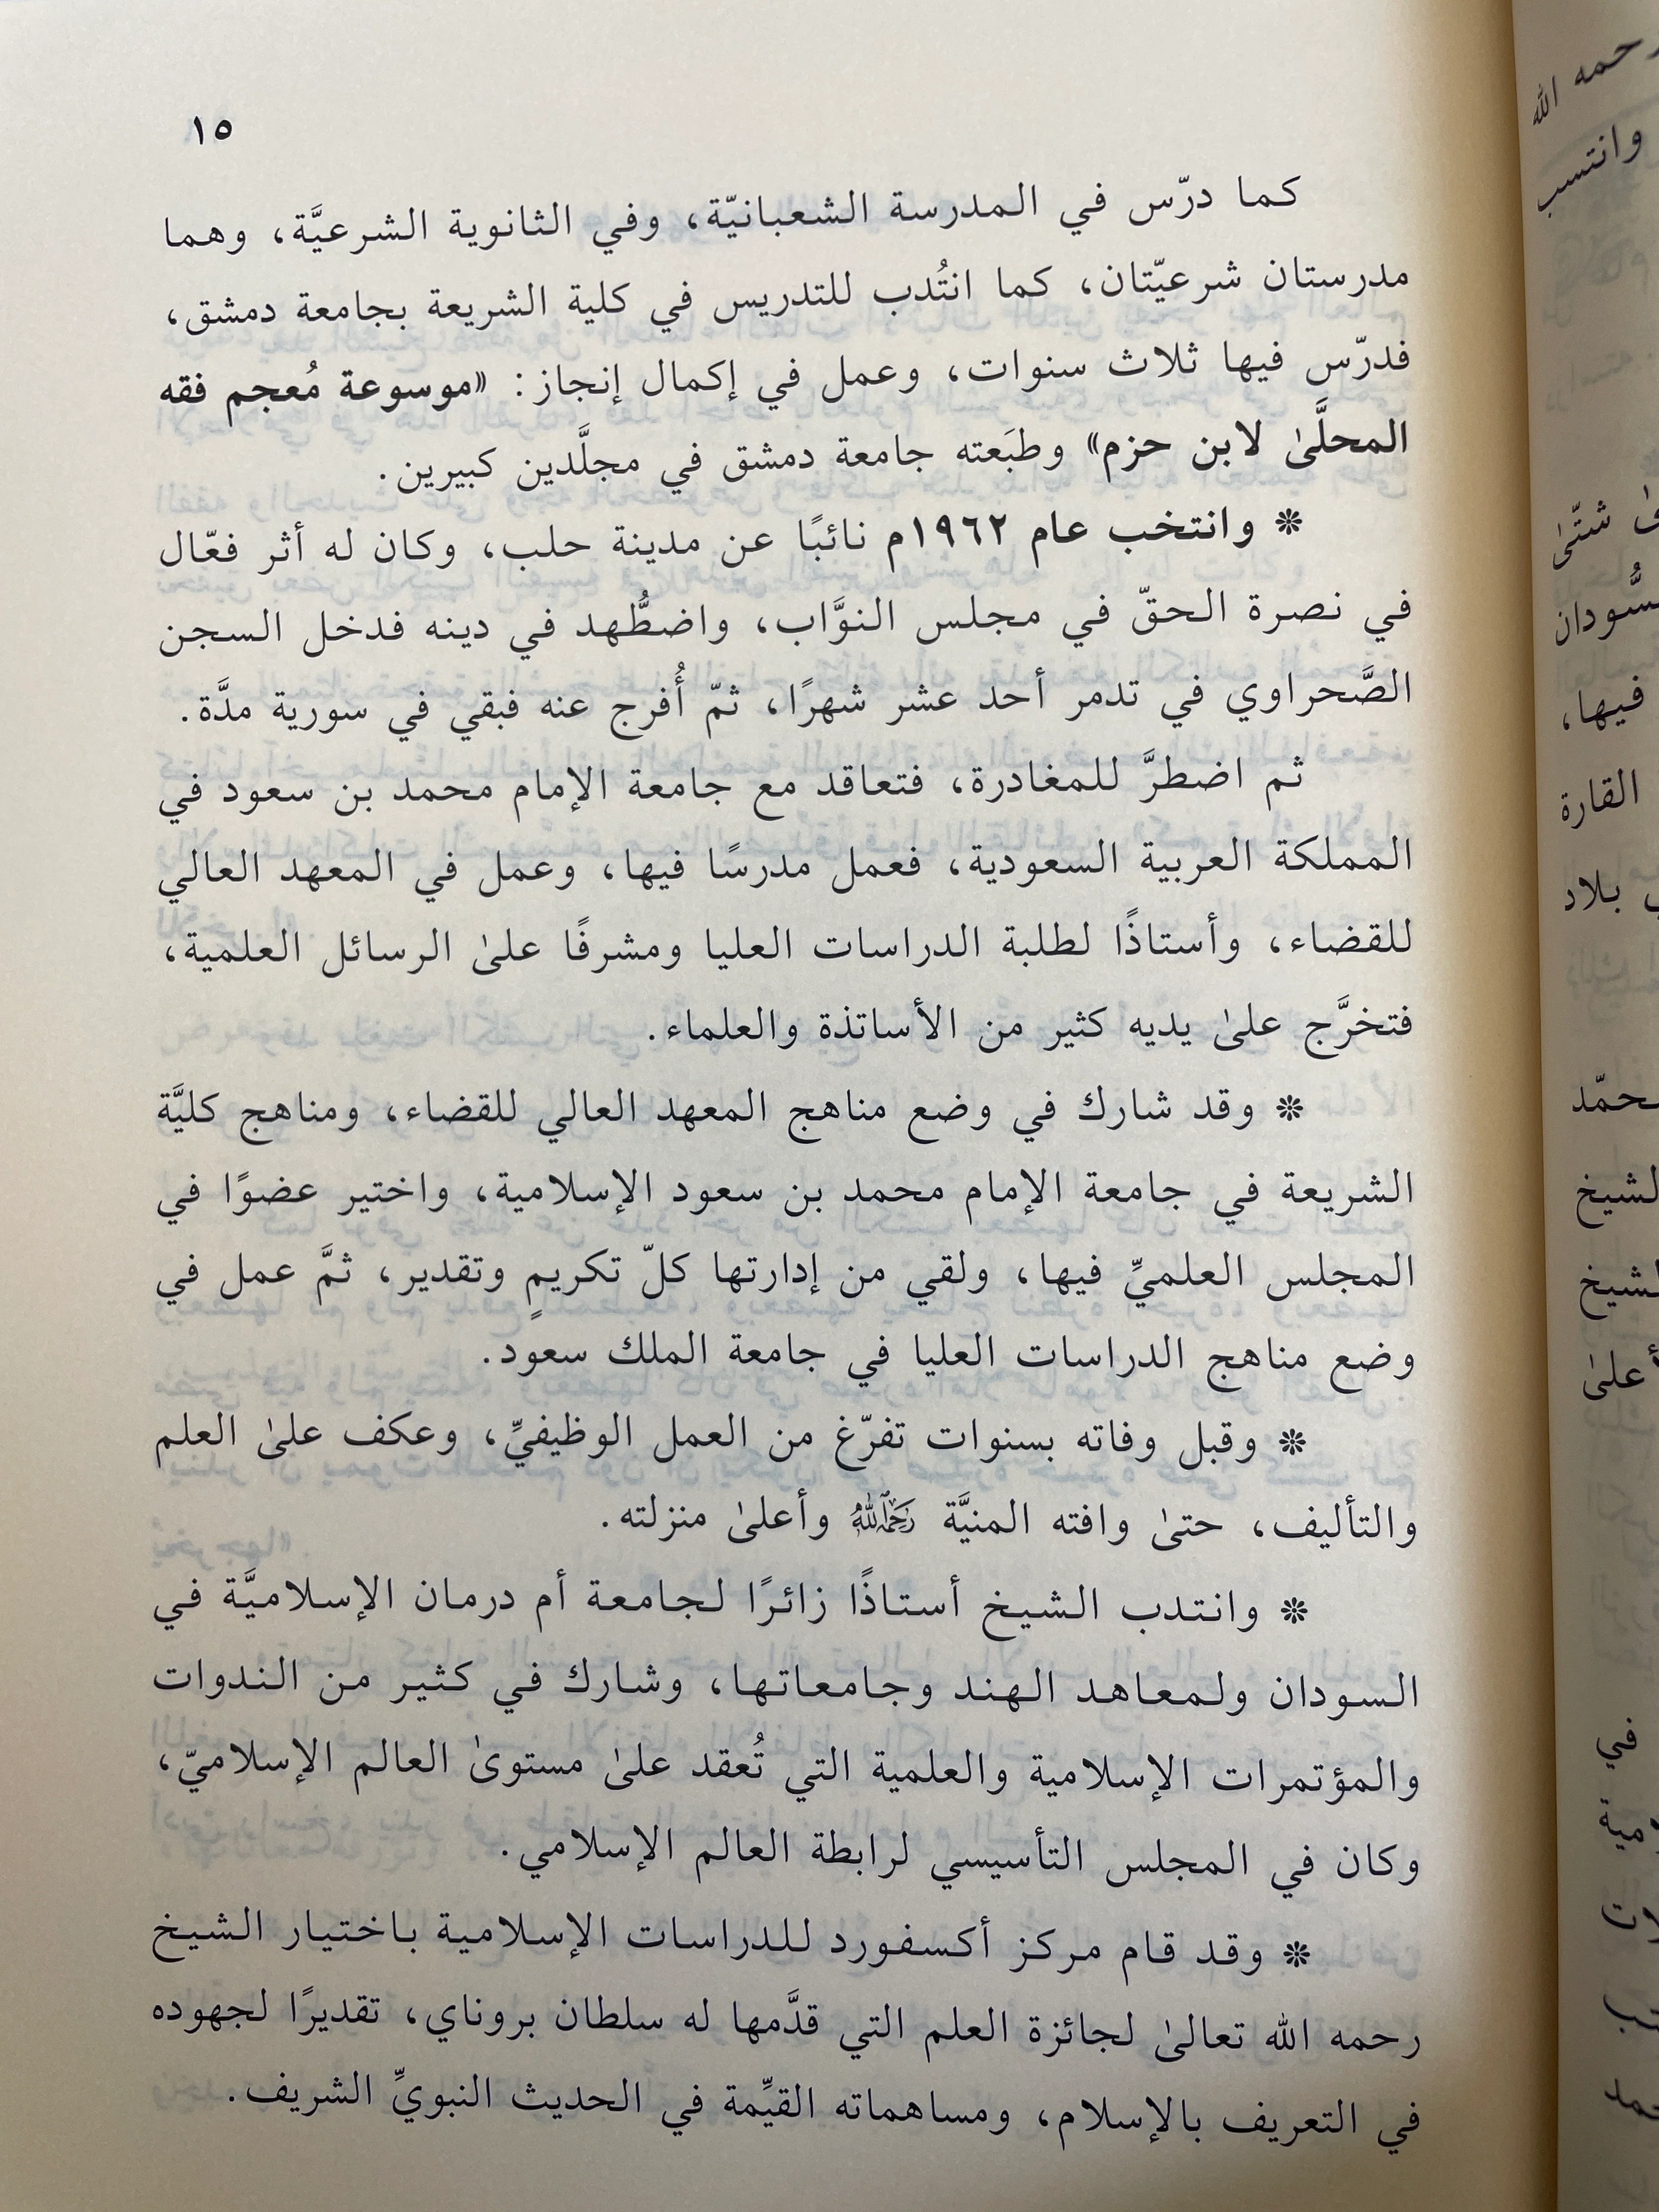 ١٥
كما درّس في المدرسة الشعبانيّة، وفي الثانوية الشرعيَّة، وهما
مدرستان شرعيّتان، كما انتُدب للتدريس في كلية الشريعة بجامعة دمشق،
فدرّس فيها ثلاث سنوات، وعمل في إكمال إنجاز: «موسوعة مُعجم فقه
المحلَّىٰ لابن حزم» وطبَعته جامعة دمشق في مجلَّدين كبيرين.
❊ وانتخب عام ١٩٦٢م نائبًا عن مدينة حلب، وكان له أثر فعّال
في نصرة الحقّ في مجلس النوَّاب، واضطُّهد في دينه فدخل السجن
الصَّحراوي في تدمر أحد عشر شهرًا، ثمّ أُفرج عنه فبقي في سورية مدَّة.
ثم اضطرَّ للمغادرة، فتعاقد مع جامعة الإمام محمد بن سعود في
المملكة العربية السعودية، فعمل مدرسًا فيها، وعمل في المعهد العالي
للقضاء، وأستاذًا لطلبة الدراسات العليا ومشرفًا علىٰ الرسائل العلمية،
فتخرَّج علىٰ يديه كثير من الأساتذة والعلماء.
❊ وقد شارك في وضع مناهج المعهد العالي للقضاء، ومناهج كليَّة
الشريعة في جامعة الإمام محمد بن سعود الإسلامية، واختير عضوًا في
المجلس العلميِّ فيها، ولقي من إدارتها كلّ تكريمٍ وتقدير، ثمَّ عمل في
وضع مناهج الدراسات العليا في جامعة الملك سعود.
❊ وقبل وفاته بسنوات تفرّغ من العمل الوظيفيِّ، وعكف علىٰ العلم
والتأليف، حتىٰ وافته المنيَّة رَحِمَهُ اللَّهُ وأعلىٰ منزلته.
❊ وانتدب الشيخ أستاذًا زائرًا لجامعة أم درمان الإسلاميَّة في
السودان ولمعاهد الهند وجامعاتها، وشارك في كثير من الندوات
والمؤتمرات الإسلامية والعلمية التي تُعقد علىٰ مستوىٰ العالم الإسلاميّ،
وكان في المجلس التأسيسي لرابطة العالم الإسلامي.
❊ وقد قام مركز أكسفورد للدراسات الإسلامية باختيار الشيخ
رحمه الله تعالىٰ لجائزة العلم التي قدَّمها له سلطان بروناي، تقديرًا لجهوده
في التعريف بالإسلام، ومساهماته القيِّمة في الحديث النبويِّ الشريف.
رحمه الله
وانتسب
شتّىٰ
فيها،
القارة
بلاد
أعلىٰ
في